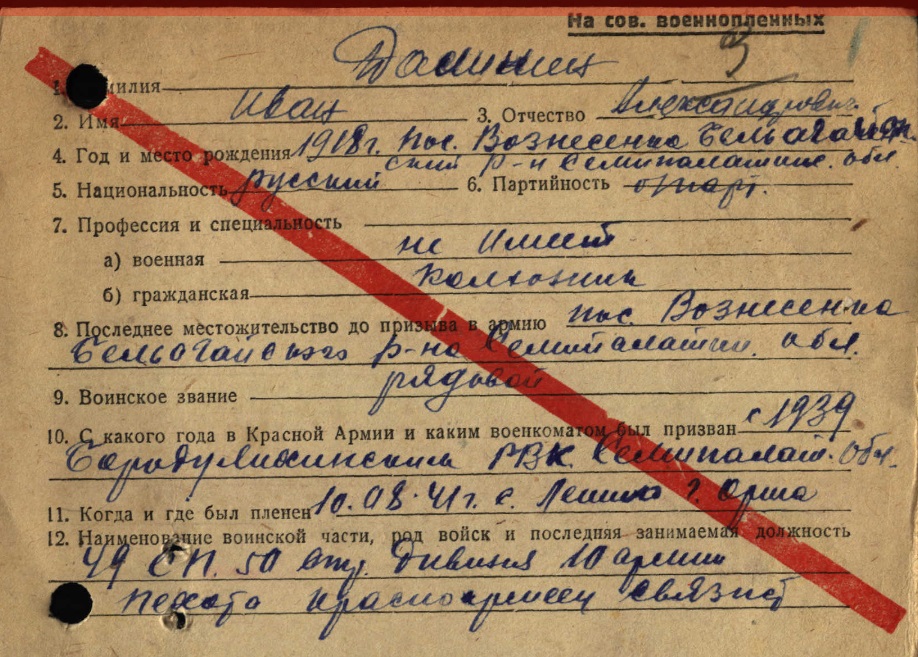 На сов. военнопленных
3
милия
2. Имя Иван 3. Отчество Александрович
4. Год и место рождения 1918 г. пос. Вознесенка Бельагач
ский р-н Семипалатинс. обл.
5. Национальность русский 6. Партийность
7. Профессия и специальность
а) военная не имеет
б) гражданская колхозник
8. Последнее местожительство до призыва в армию пос. Вознесенка
Бельагачского р-на Семипалатин. обл.
9. Воинское звание рядовой
10. С какого года в Красной Армии и каким военкоматом был призван с 1939
Бородулихинским РВК Семипалат. обл.
11. Когда и где был пленен 10.08.41 г. с. Ленино г. Орша
12. Наименование воинской части, род войск и последняя занимаемая должность
49 СП. 50 стр. дивизия 10 армии
пехота красноармеец связист